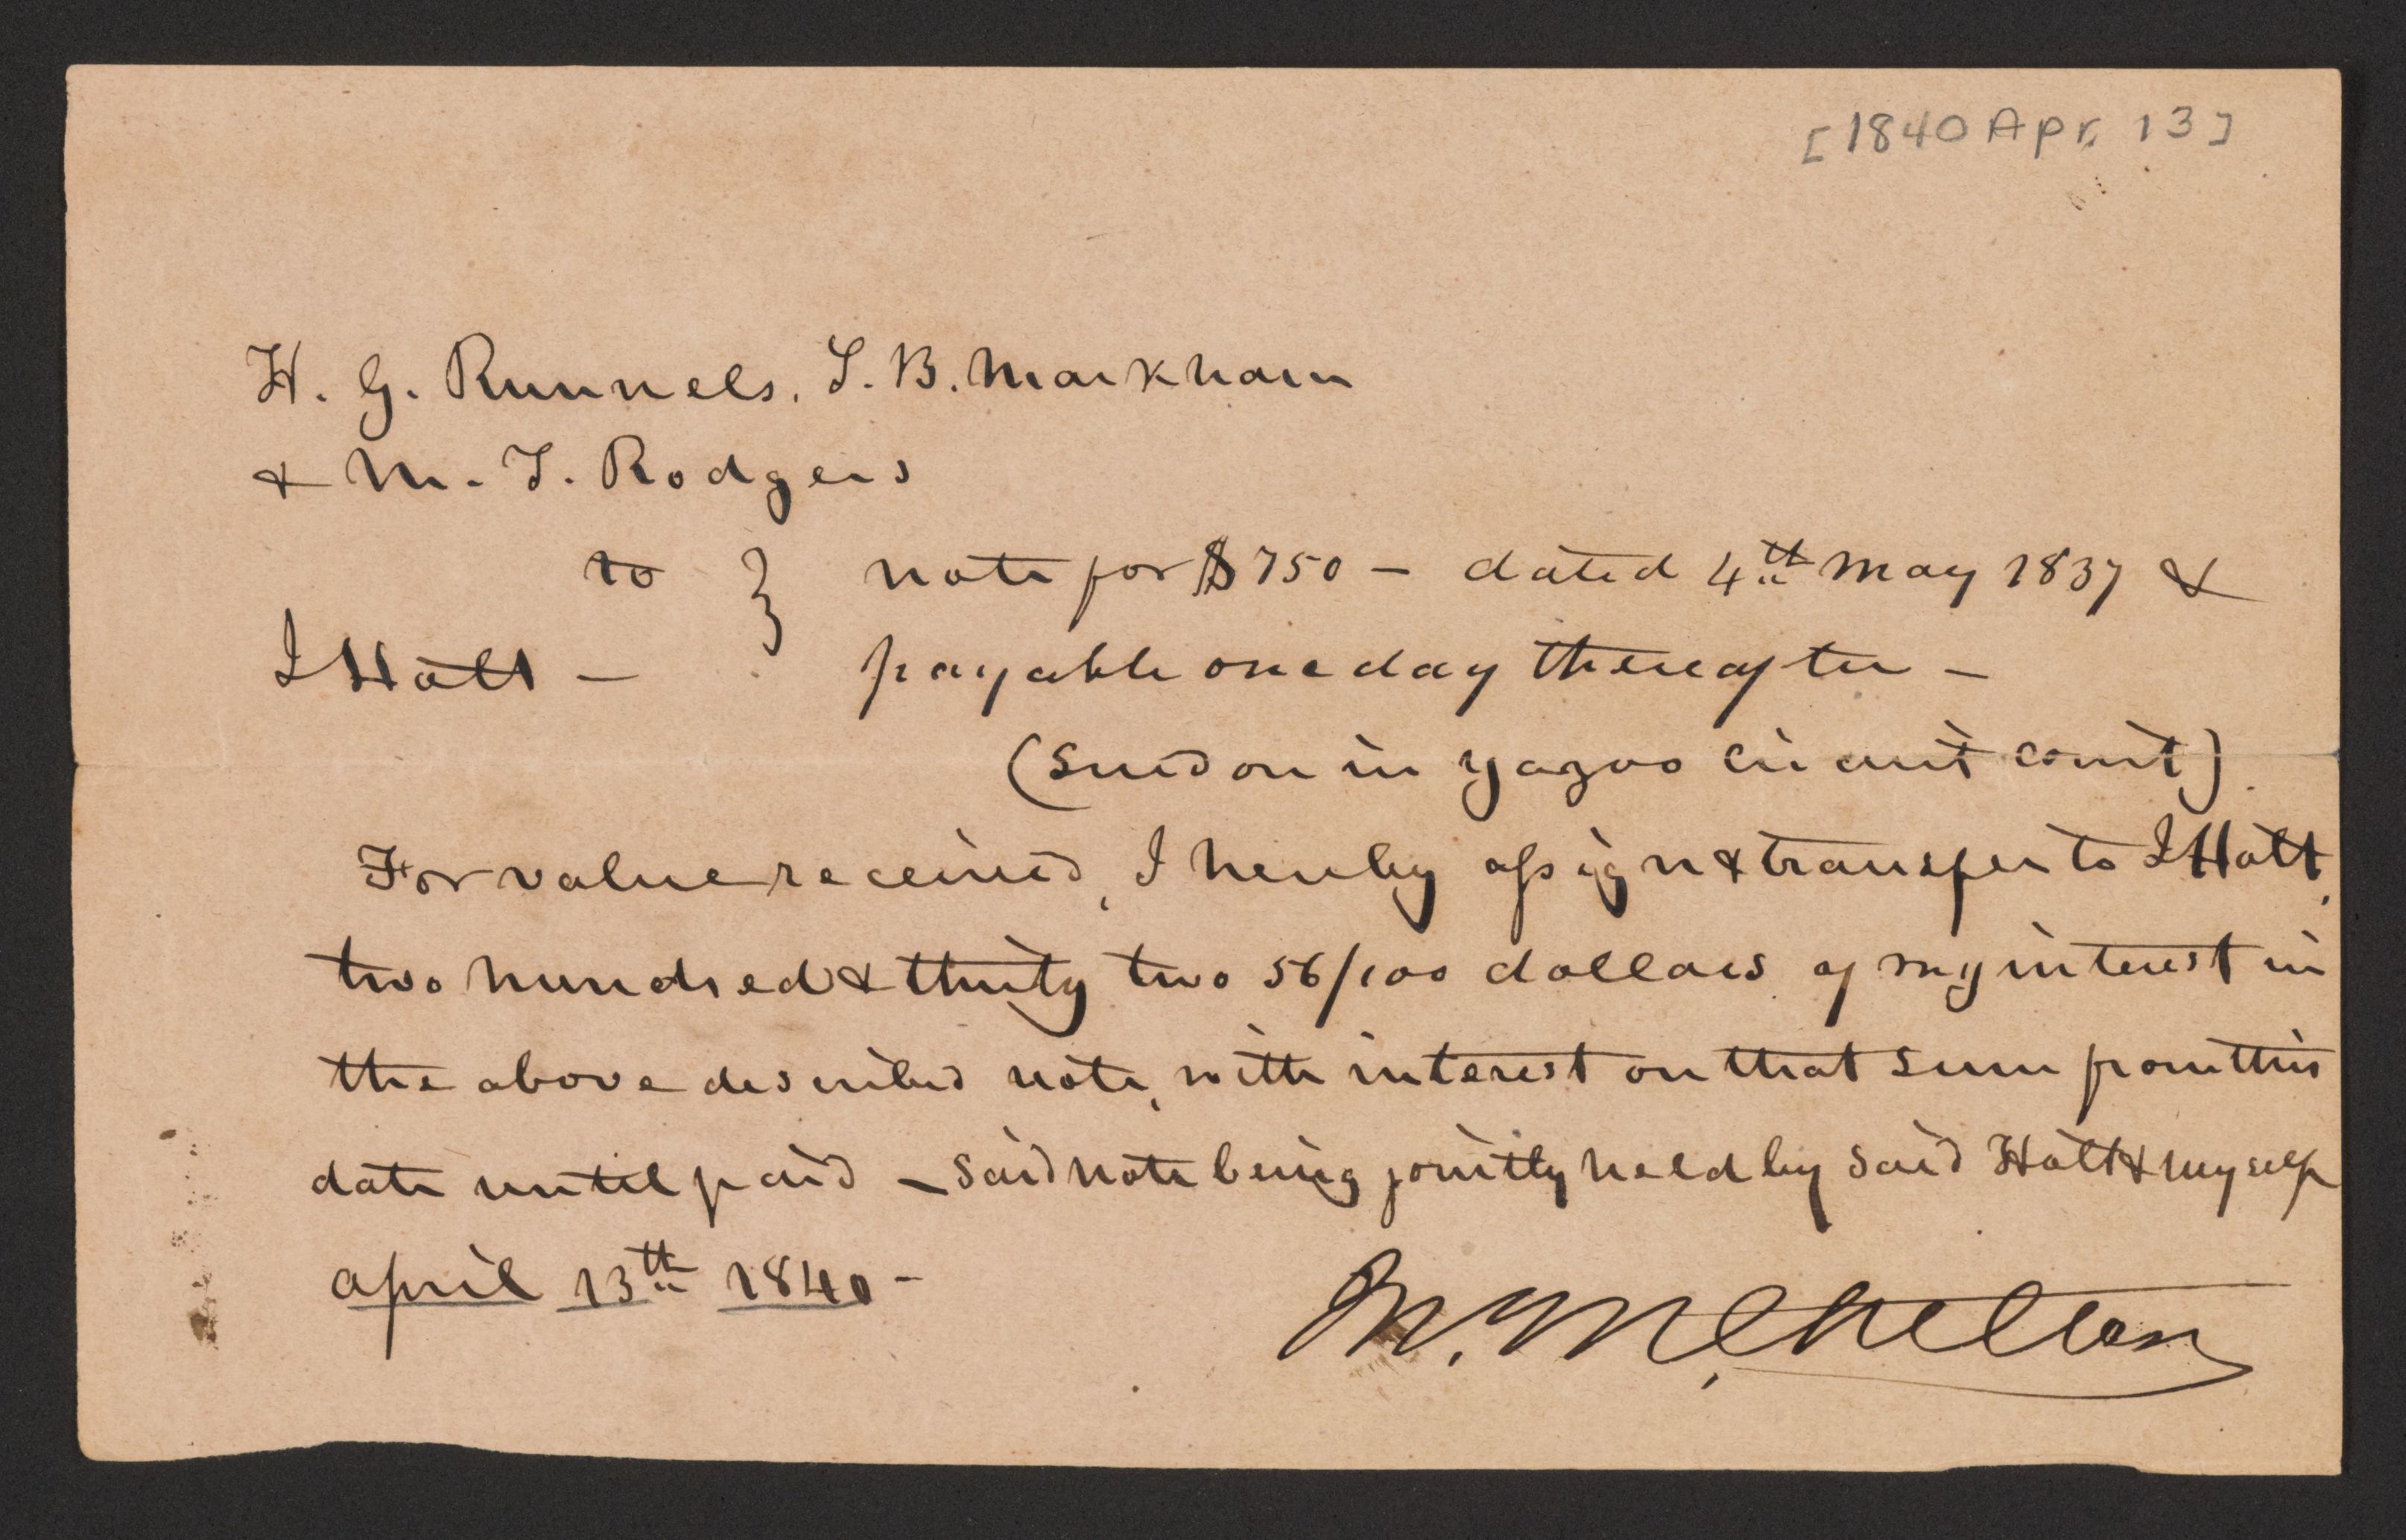 [1840 Apr. 13]
H. G. Runnels, S. B. Markham
& M. T. Rodgers
to } note for $750 – dated 4th May 1837 &
J Holt – payable one day thereafter –
(Sued on in Yazoo circuit court)
For value received, I hereby assign & transfer to J Holt,
two hundred & thirty two 56/100 dollars of my interest in
the above described note, with interest on that sum from this
date until paid – Said note being jointly held by said Holt & myself
April 13th 1840 –